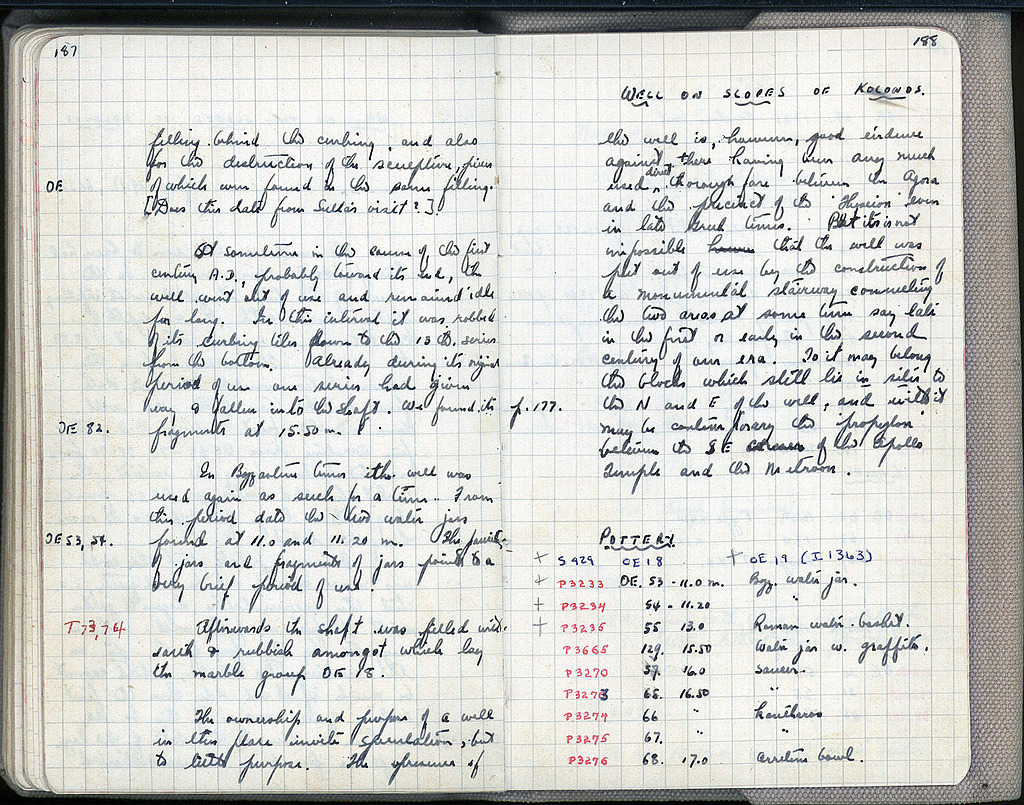 187
filling behind the curbing, and also
for the destruction of the sculpture, pieces
OE of which were found in the same filling.
[Does this date from Sulla's visit?].
At sometime in the course of the first
century A.D., probably toward its end, the
well went out of use and remained idle
for long. In this interval it was robbed
of its curbing tiles down to the 13th. series
from the bottom. Already during its original
period of use one series had given
way & fallen into the shaft. We found its p. 177.
OE 82. fragments at 15.50 m.
In Byzantine times the well was
used again as such for a time. From
this period date the two water jars
OE 53, 54. found at 11.0 and 11.20 m. The paucity
of jars and fragments of jars points to a
very brief period of use.
T 73, 74 Afterwards the shaft was filled with
earth & rubbish amongst which lay
the marble group OE 18.
The ownership and purpose of a well
in this place invite speculation, but
to little purpose. The presence of
188
WELL ON SLOPES OF KOLONOS.
the well is, however, good evidence
against there having been any much
used, direct thoroughfare between the Agora
and the precinct of the 'Theseion' even
in late Greek times. But it is not
impossible that the well was
put out of use by the construction of
a monumental stairway connecting
the two areas at some time say late
in the first or early in the second
century of our era. To it may belong
the blocks which still lie in situ to
the N and E of the well, and with it
may be contemporary the 'propylon'
between the S E corner of the Apollo
Temple and the Metroon.
POTTERY
+ S 429 OE 18 + OE 19 (I 1363)
+ P3233 OE. 53 - 11.0 m. Byz. water jar.
+ P3234 54 - 11.20 "
+ P3235 55 13.0 Roman water basket.
P3665 129. 15.50 Water jar w. graffito.
P3270 59. 16.0 saucer.
P3273 65. 16.50 "
P3274 66 " kantharos
P3275 67. " "
P3276 68. 17.0 arretine bowl.